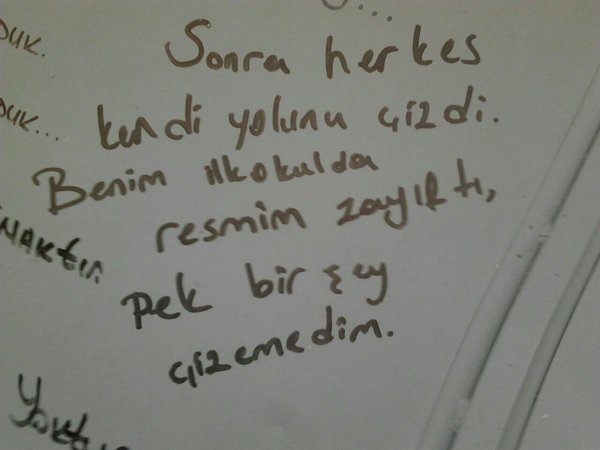 DUK.
Sonra herkes
DUK...
kendi yolunu çizdi.
Benim ilkokulda
resmim zayıftı,
pek bir şey
çizemedim.